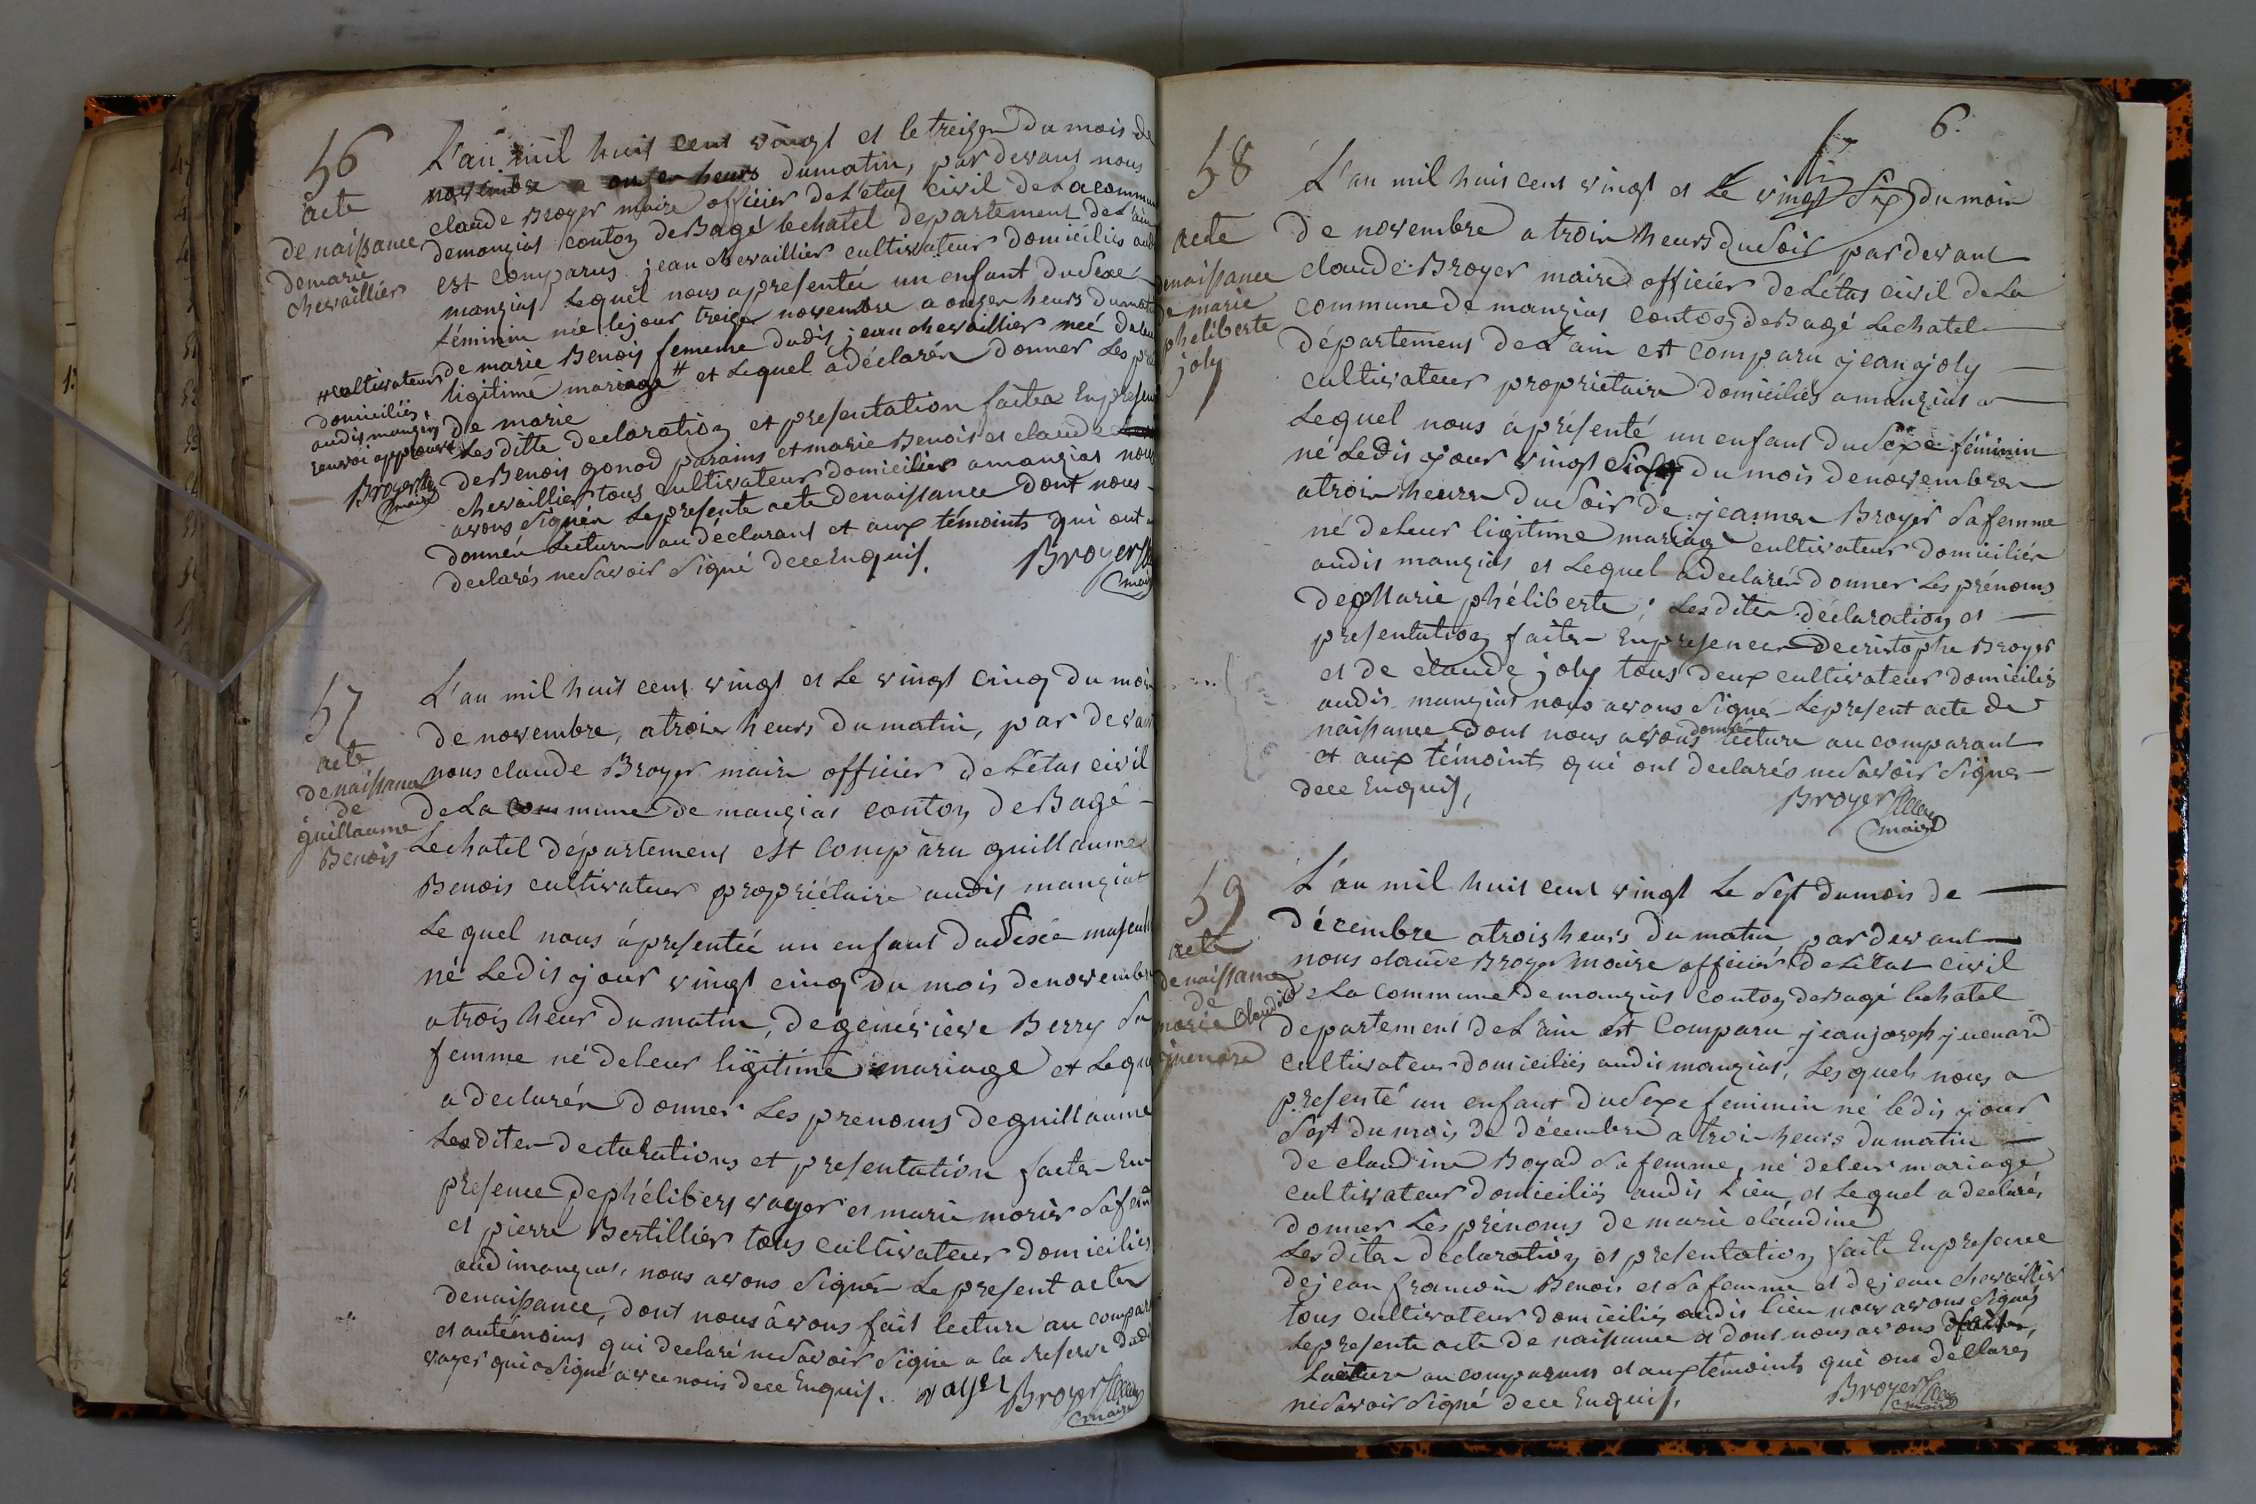 56
acte
de naissance
de marie
chevaillier
L'an mil huit cent vingt et le treize du mois de
novembre a onze heurs du matin, par devant nous
claude Broyer maire officier de L'état civil de La commune
de manziat conton de Bagé le chatel departement de L'ain
est comparus jean chevaillier cultivateur domiciliés audit
manziat Lequel nous a presentée un enfant du Sexe
féminin née le jour treize novembre a onze heurs du matin
de marie Benois femme dudit jean chevaillier née de leur
ligitime mariage # et Lequel a déclarée donner Les pré
de marie
# cultivateurs
domiciliés
audit manziat
renvoi approuvé
Broyer
maire
Les ditte declaration et presentation faitea En presen
de Benois gonod parains et marie Benois et claude
chevaillier tous cultivateur domiciliés a manziat nous
avons Signée Le presente acte de naissance Dont nous
donnée Lecture au déclarant et aux témoints qui ont
declarés ne Savoir Signé de ce Enquis.
Broyer
maire
57
acte
de naissance
de
guillaume
Benois
L'an mil huit cent vingt et Le vingt cinq du mois
de novembre, a trois heurs du matin, par devant
nous claude Broyer maire officier de L'état civil
de La commune de manziat conton de Bagé
Le chatel département est comparu guillaume
Benois cultivateur propriétaire audit manziat
Le quel nous à presentée un enfant du Sexée masculi
né Ledit jour vingt cinq du mois de novembre
a trois heur du matin, de geneviève Berry sa
femme né de leur ligitime mariage et Lequel
a declarée donner Les prenoms de guillaume
Les dites declarations et presentation faites En
presence de phélibers vayer et marie morin sa fem
et pierre Bertillier tous cultivateur domiciliés
audimanziat, nous avons Signée Le present acte
de naissance, dont nous avons fait lecture au compar
et autémoins qui declaré ne Savoir Signe a la reserve dudi
vayer qui a Signé avec nous de ce Enquis. vayer Broyer
maire
6.
58
acte
de naissance
de marie
pheliberte
joly
L'an mil huit cent vingt et Le vingt Six du mois
de novembre a trois heurs du Soir par devant
claude Broyer maire officier de L'état civil de La
commune de manziat conton de Bagé Le chatel
département de L'ain est comparu jean joly
cultivateur propriétaire domiciliés a manziat
Lequel nous à présenté un enfant du Sexe féminin
né Ledit jour vingt Six du mois de novembre
a trois heures du Soir de jeanne Broyer Sa femme
né de Leur ligitime mariage cultivateur domiciliés
audit manziat et Lequel a declaré donner Les prénoms
de Marie phéliberte. Les dites déclaration et
presentation faites En presence de cristophe Broyer
et de claude joly tous deux cultivateur domiciliés
audit manziat nous avons Signé Le present acte de
naissance dont nous avons donné lecture au comparant
et aux témoints qui ont declarés ne Savoir Signer
de ce Enquis,
Broyer
maire
59
acte
de naissance
de
marie Claudine
juenard
L'an mil huit cent vingt Le Sept du mois de
décembre a trois heurs du matin par devant
nous claude Broyer maire officier de L'état civil
de La commune de manziat conton de Bagé le chatel
departement de L'ain est Comparu jean joseph juenard
cultivateur domiciliés audit manziat, Lesquels nous a
presenté un enfant du Sexe feminin né ledit jour
Sept du mois de décembre a trois heurs du matin
de claudine Boyad Sa femme, né de leur mariage
cultivateur domiciliés audit Lieu, et Lequel a declarés
donner Les prénoms de marie claudine
Les dites declaration et presentation faite En presence
de jean francois Benois et Sa femme et de jean chevaillier
tous cultivateur domiciliés audit lieu nous avons Signés
Le presente acte de naissance et dont nous avons
Lecture au comparant et aux témoints qui ont declarés
ne Savoir Signé de ce Enquis.
Broyer
maire